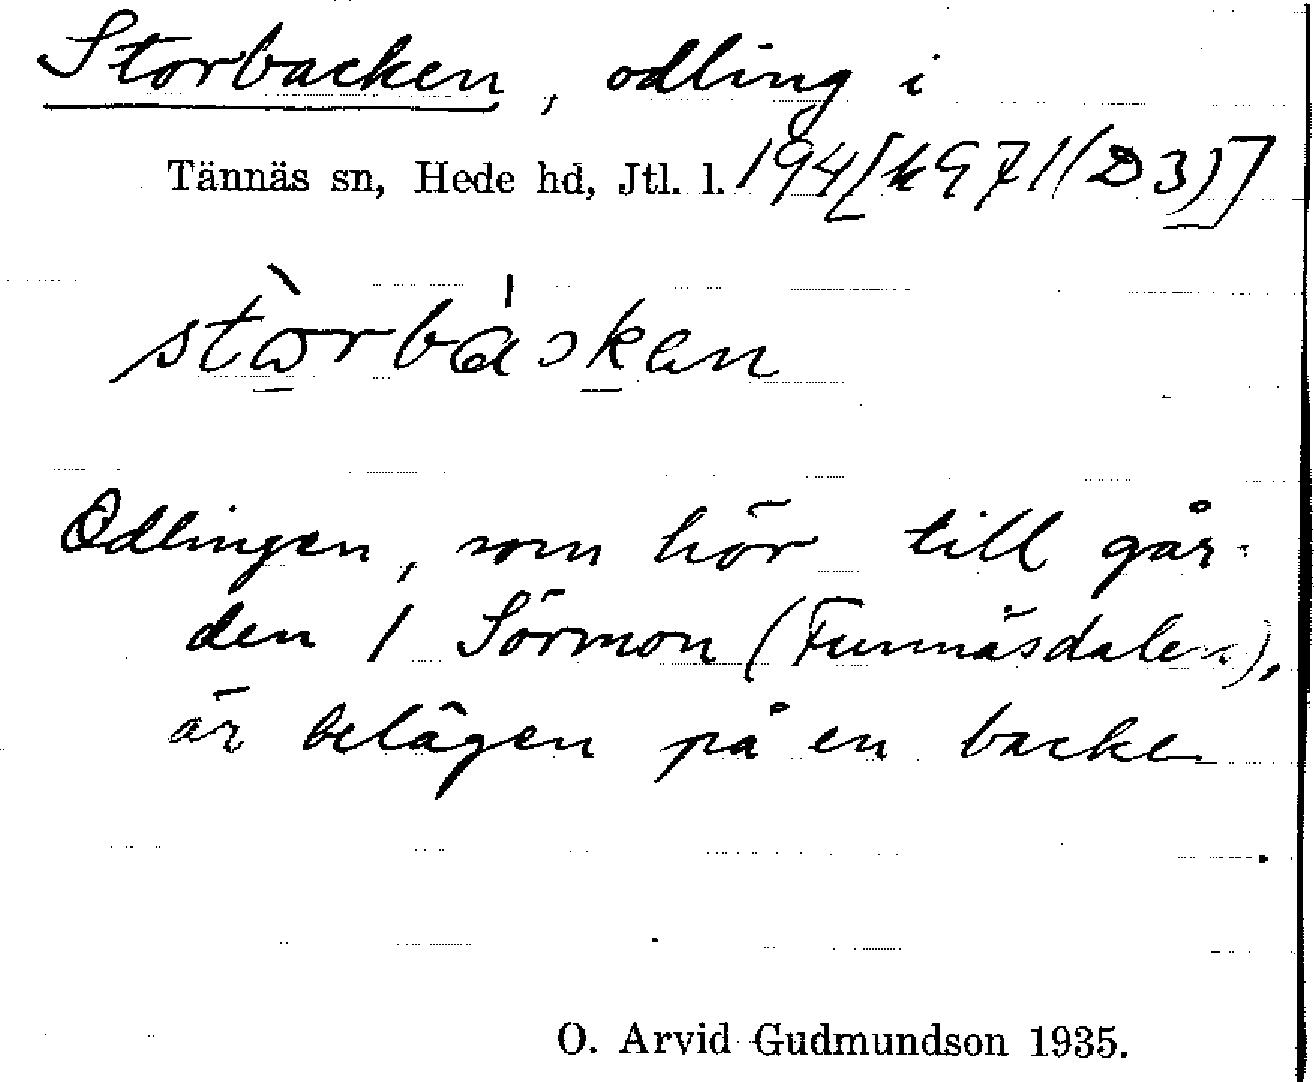 Storbacken, odling i
Tännäs sn, Hede hd, Jtl. l. 194[k971(D3)]
Odlingen, som hör till går-
den 1 Sörmon (Funnäsdalen),
är belägen på en backe
O. Arvid Gudmundson 1935.